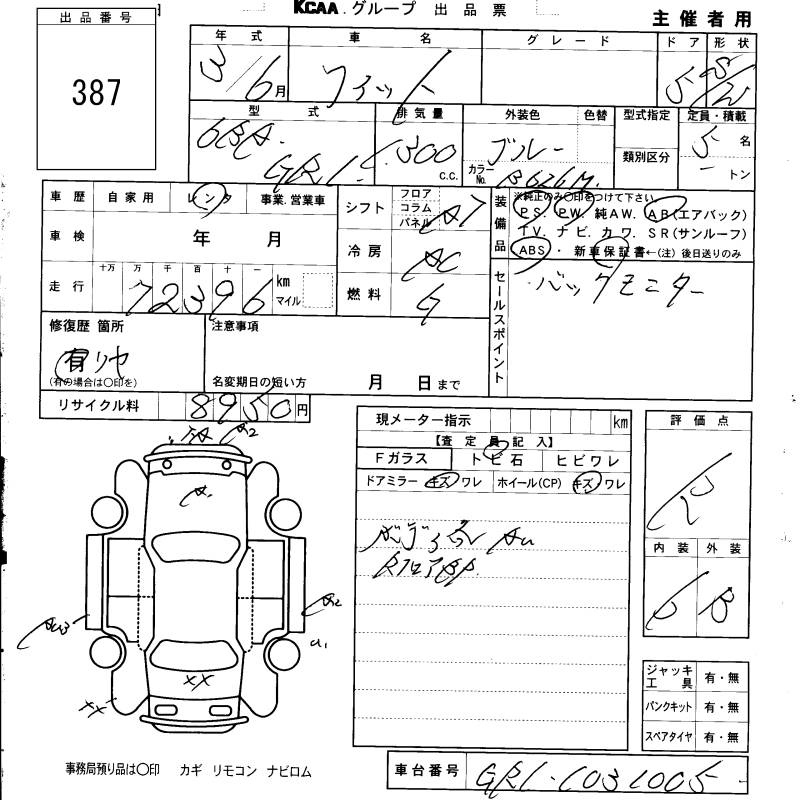 KCAA. グループ 出品票
主催者用
出品番号
387
年式 車名 グレード ドア 形状
3/6月 フィット 5 S/W
型式 排気量 外装色 色替 型式指定 定員・積載
6BA- GR1 1300 C.C. ブルー 類別区分 5名
カラーNo. B626M トン
車歴 自家用 レンタ 事業.営業車
車検 年 月
走行 十万 万 千 百 十 一 km マイル
72396
シフト フロア コラム パネル AT
冷房 AC
燃料 G
装備品 ※純正のみ〇印をつけて下さい
PS. PW. 純AW. AB(エアバック)
TV. ナビ. カワ. SR(サンルーフ)
ABS・ 新車保証書←(注) 後日送りのみ
セールスポイント バックモニター
修復歴 箇所
有 リヤ
(有の場合は〇印を)
注意事項
名変期日の短い方 月 日まで
リサイクル料 8950円
現メーター指示 km
【査定員記入】
Fガラス トビ石 ヒビワレ
ドアミラー キズ ワレ ホイール(CP) キズ ワレ
RフロアBP.
評価点
R
内装 外装
C B
A2
A1
A2
U1
XX
XX
ジャッキ工具 有・無
パンクキット 有・無
スペアタイヤ 有・無
事務局預り品は〇印 カギ リモコン ナビロム
車台番号 GR1-1031005-